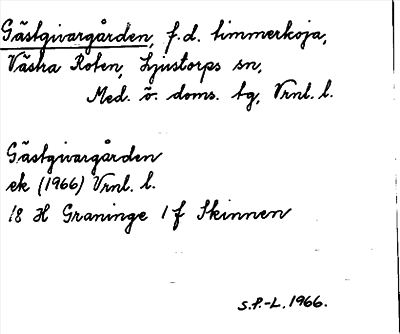 Gästgivargården, f.d. timmerkoja,
Västra Roten, Ljustorps sn,
Med. ö. doms. tg, Vrnl. l.
Gästgivargården
ek (1966) Vrnl. l.
18 H Graninge 1 f Skinnen
S.P.-L. 1966.